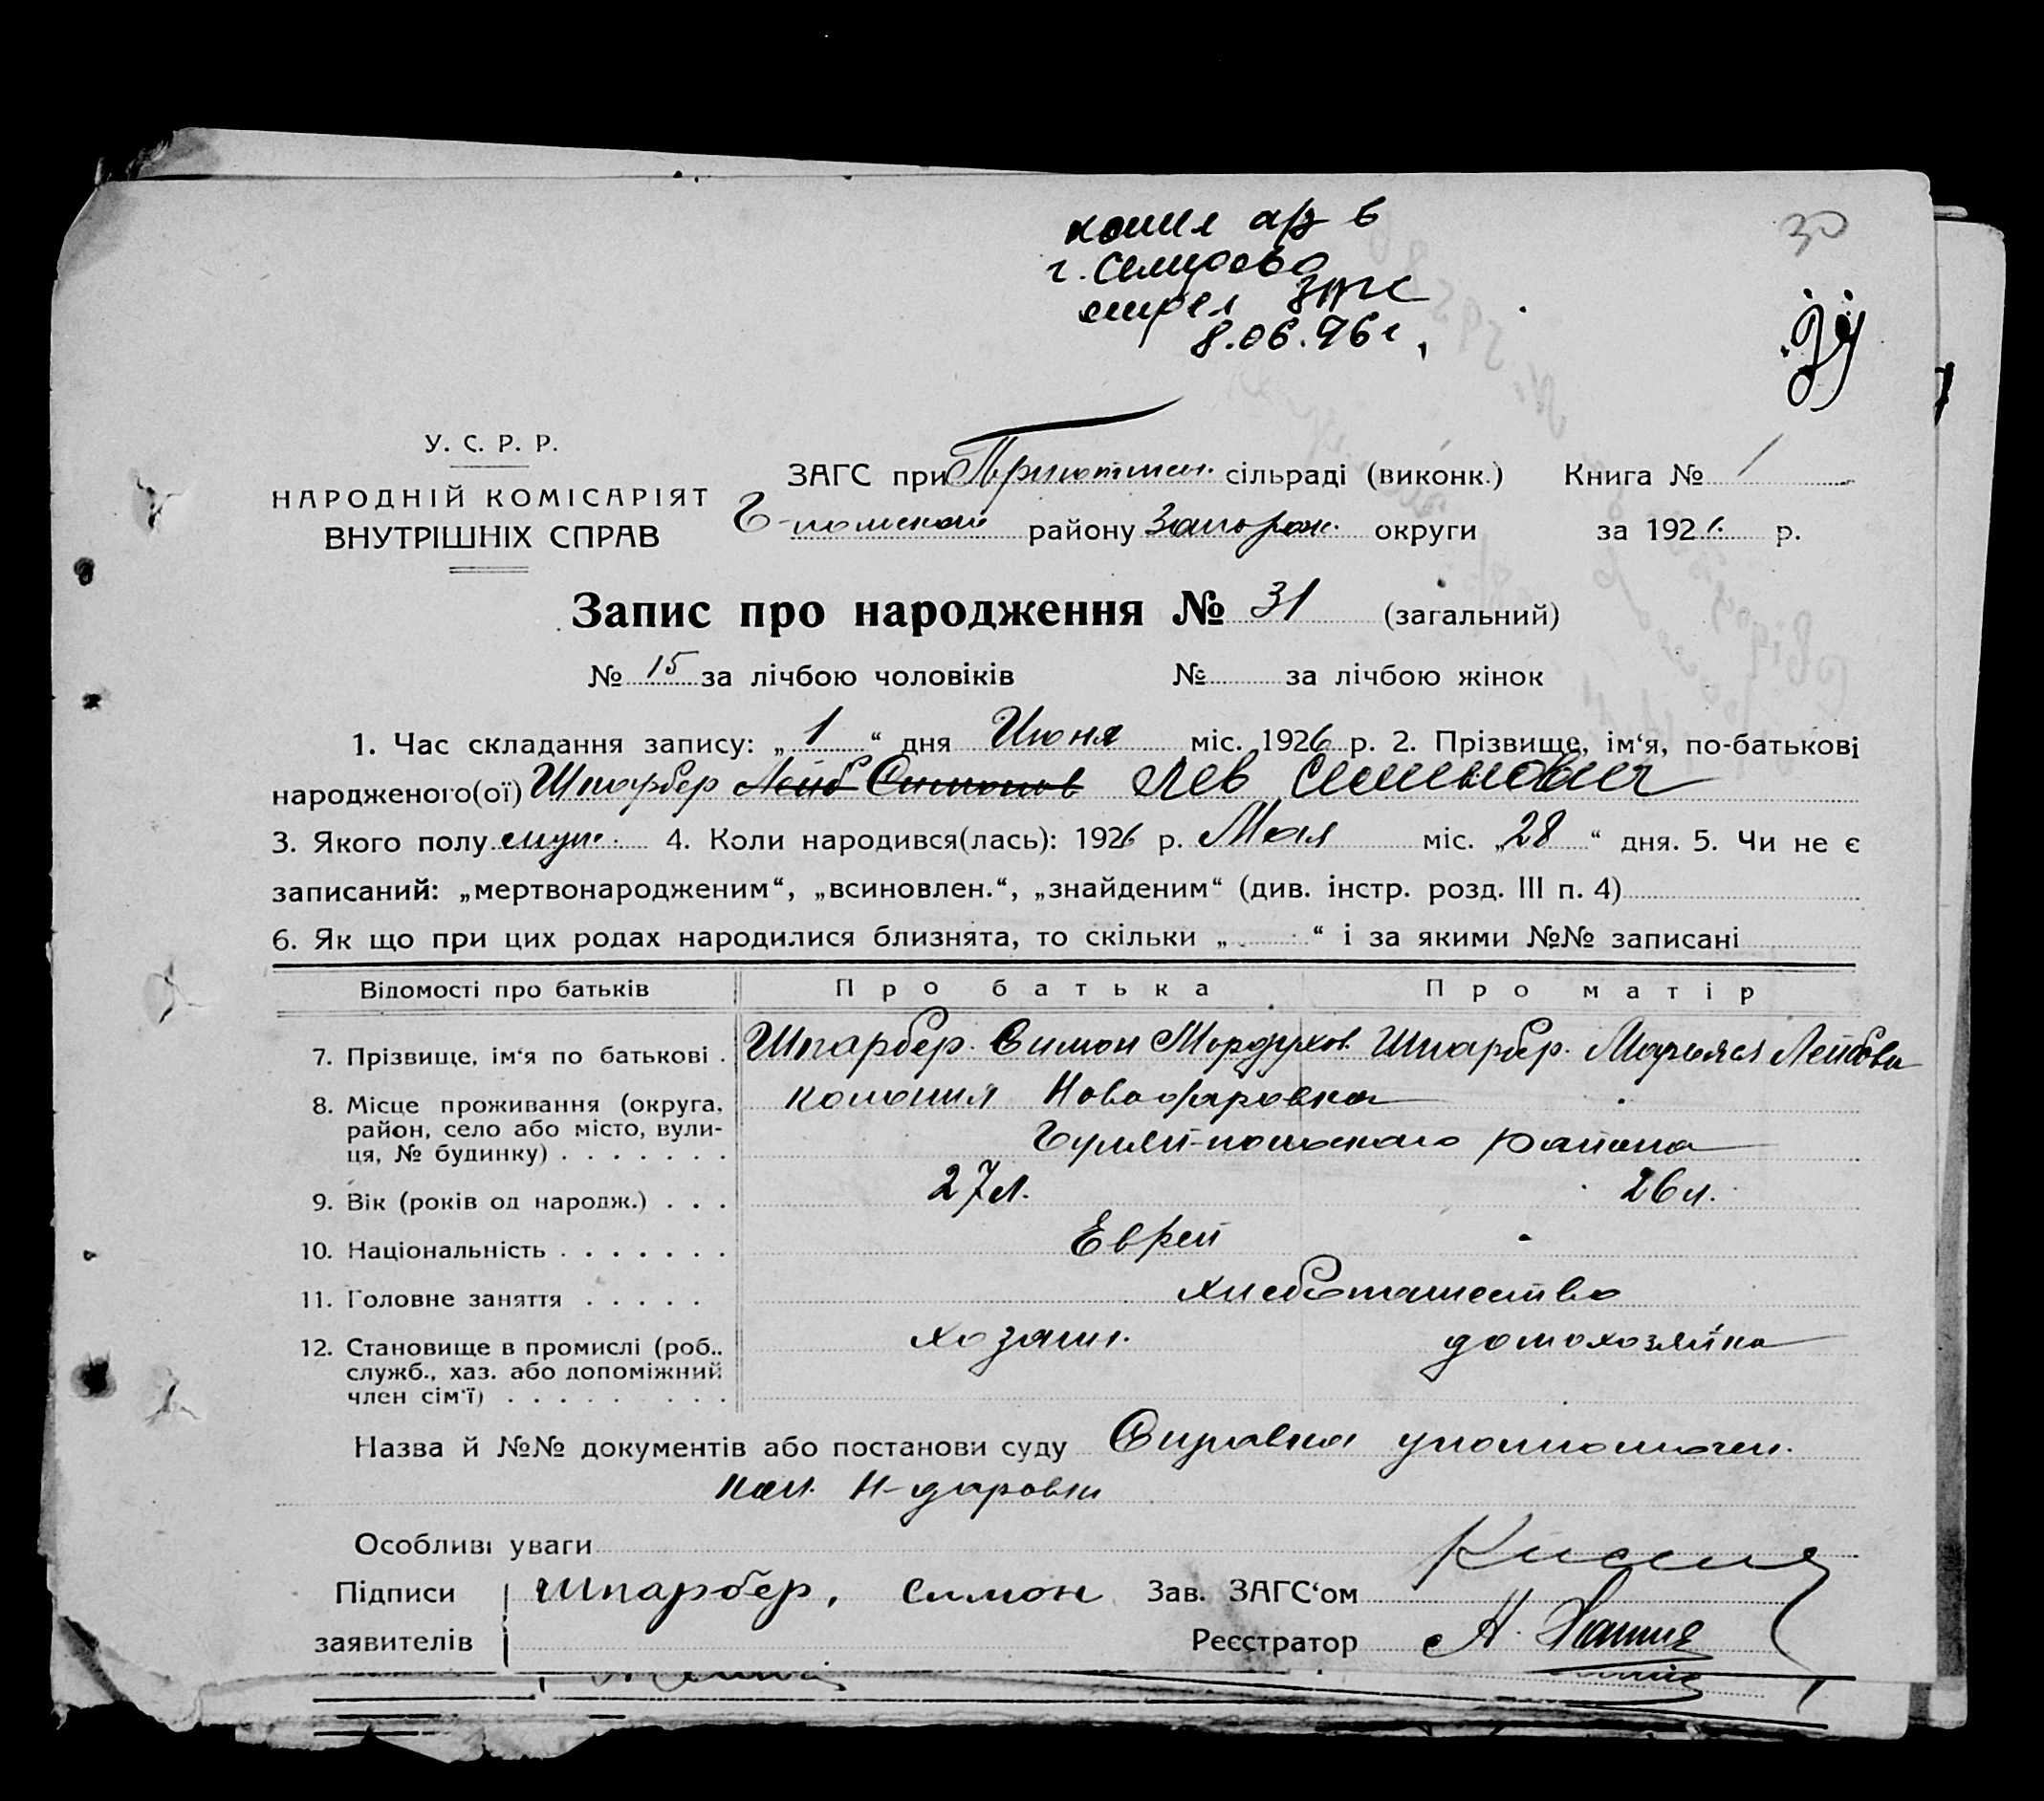 копия а/з в
г. Семипова
отдел ЗАГС
8.06.96 г,
30
У. С. Р. Р.
НАРОДНІЙ КОМІСАРІЯТ
ВНУТРІШНІХ СПРАВ
ЗАГС при сільраді (виконк.) Книга № 1
Г-польскаго району Запорож. округи за 192 р.
Запис про народження № 31 (загальний)
№ 15 за лічбою чоловіків № за лічбою жінок
1. Час складання запису: „ 1 “ дня Июня міс. 1926 р. 2. Прізвище, ім‘я, по-батькові
народженого(ої) Шпарбер Лейб Симонов Лев Семенович
3. Якого полу муж. 4. Коли народився(лась): 1926 р. Мая міс. „28“ дня. 5. Чи не є
записаний: „мертвонародженим“, „всиновлен.“, „знайденим“ (див. інстр. розд. III п. 4)
6. Як що при цих родах народилися близнята, то скільки „ “ і за якими №№ записані
Відомості про батьків Про батька Про матір
7. Прізвище, ім‘я по батькові . Шпарбер Симон Мордухов. Шпарбер Марьяся Лейбовн
8. Місце проживання (округа, колония Новодаровка
район, село або місто, вули- Гуляй-польскаго района
ця, № будинку) . . . . . . .
9. Вік (років од народж.) . . . 27 л. 26 л.
10. Національність . . . . . . . Еврей "
11. Головне заняття . . . . . хлебопашество
12. Становище в промислі (роб., хозяин. домохозяйка
служб., хаз. або допоміжний
член сім‘ї) . . . . . . . .
Назва й №№ документів або постанови суду Справка уполномочен.
кол. Н-даровки
Особливі уваги
Підписи Шпарбер, Симон Зав. ЗАГС‘ом
заявителів Реєстратор